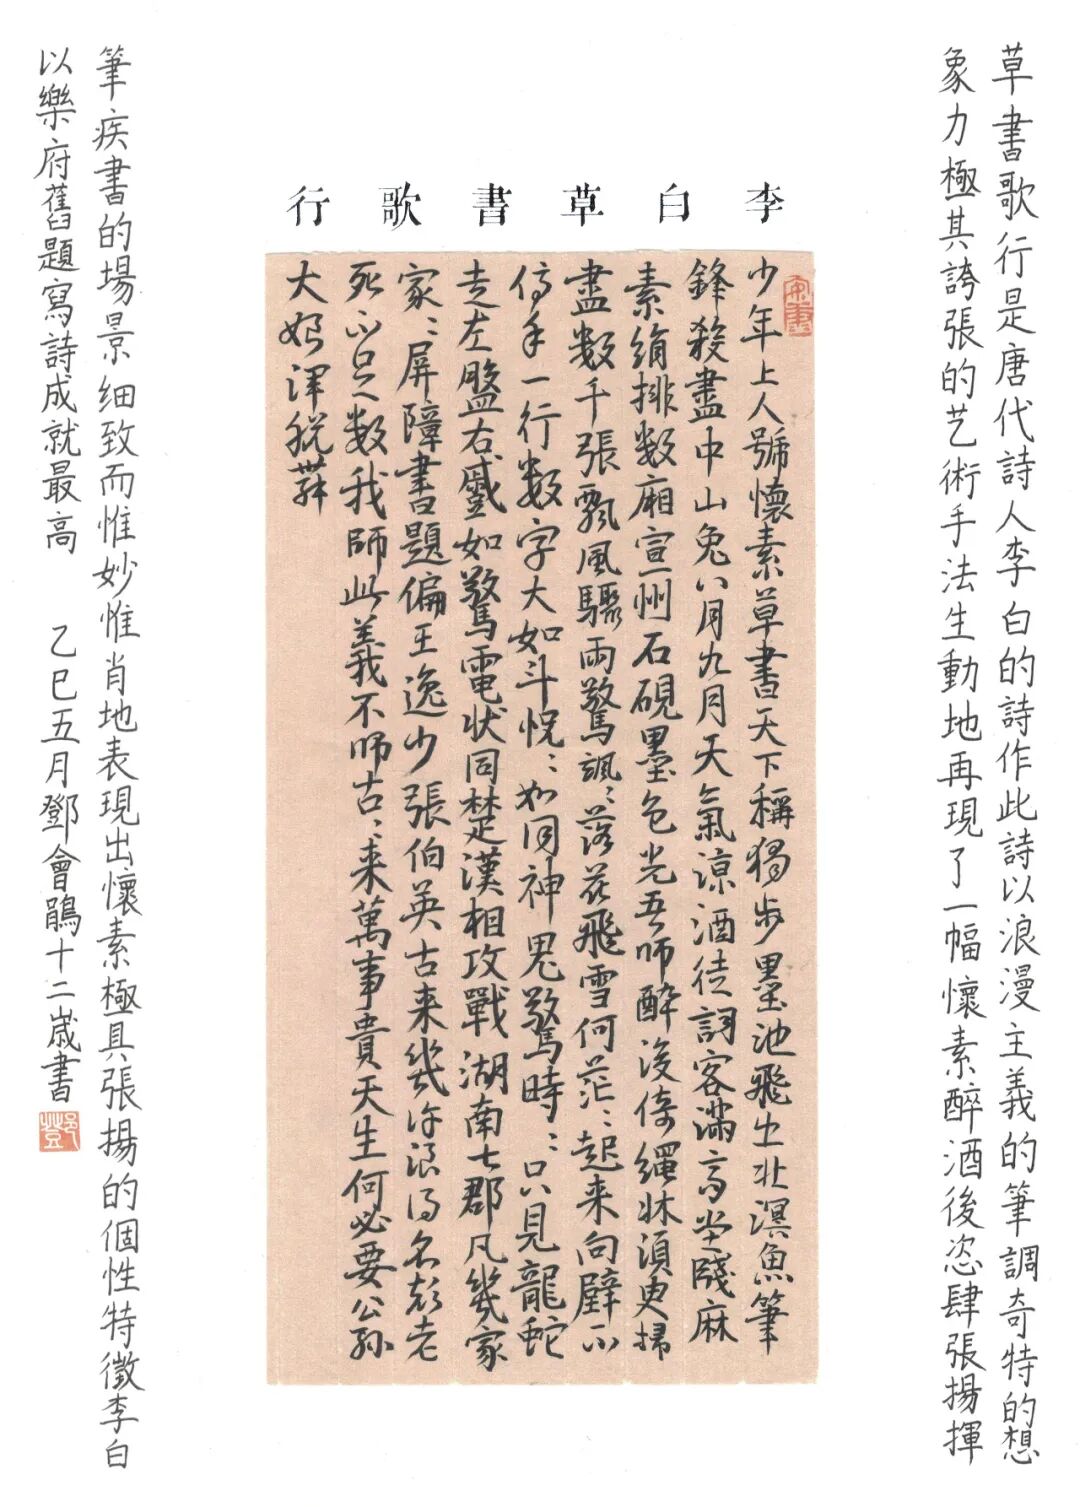 草書歌行是唐代詩人李白的詩作此詩以浪漫主義的筆調奇特的想
象力極其誇張的艺術手法生動地再現了一幅懷素醉酒後恣肆張揚揮
李白草書歌行
少年上人號懷素草書天下稱獨步墨池飛出北溟魚筆
鋒殺盡中山兔八月九月天氣涼酒徒詞客滿高堂牋麻
素絹排数廂宣州石硯墨色光吾師醉後倚繩牀須臾掃
盡数千張飄風驟雨驚颯〻落花飛雪何茫〻起来向壁不
停手一行数字大如斗怳〻如同神鬼驚時〻只見龍蛇
走左盤右蹙如驚電状同楚漢相攻戰湖南七郡凡幾家
家〻屏障書題偏王逸少張伯英古来幾許浪得名老
死不足数我師此義不師古〻来萬事貴天生何必要公孫
大娘渾脱舞
筆疾書的場景细致而惟妙惟肖地表現出懷素極具張揚的個性特徵李白
以樂府舊題寫詩成就最高 乙巳五月鄧會鵑十二歲書
鄧